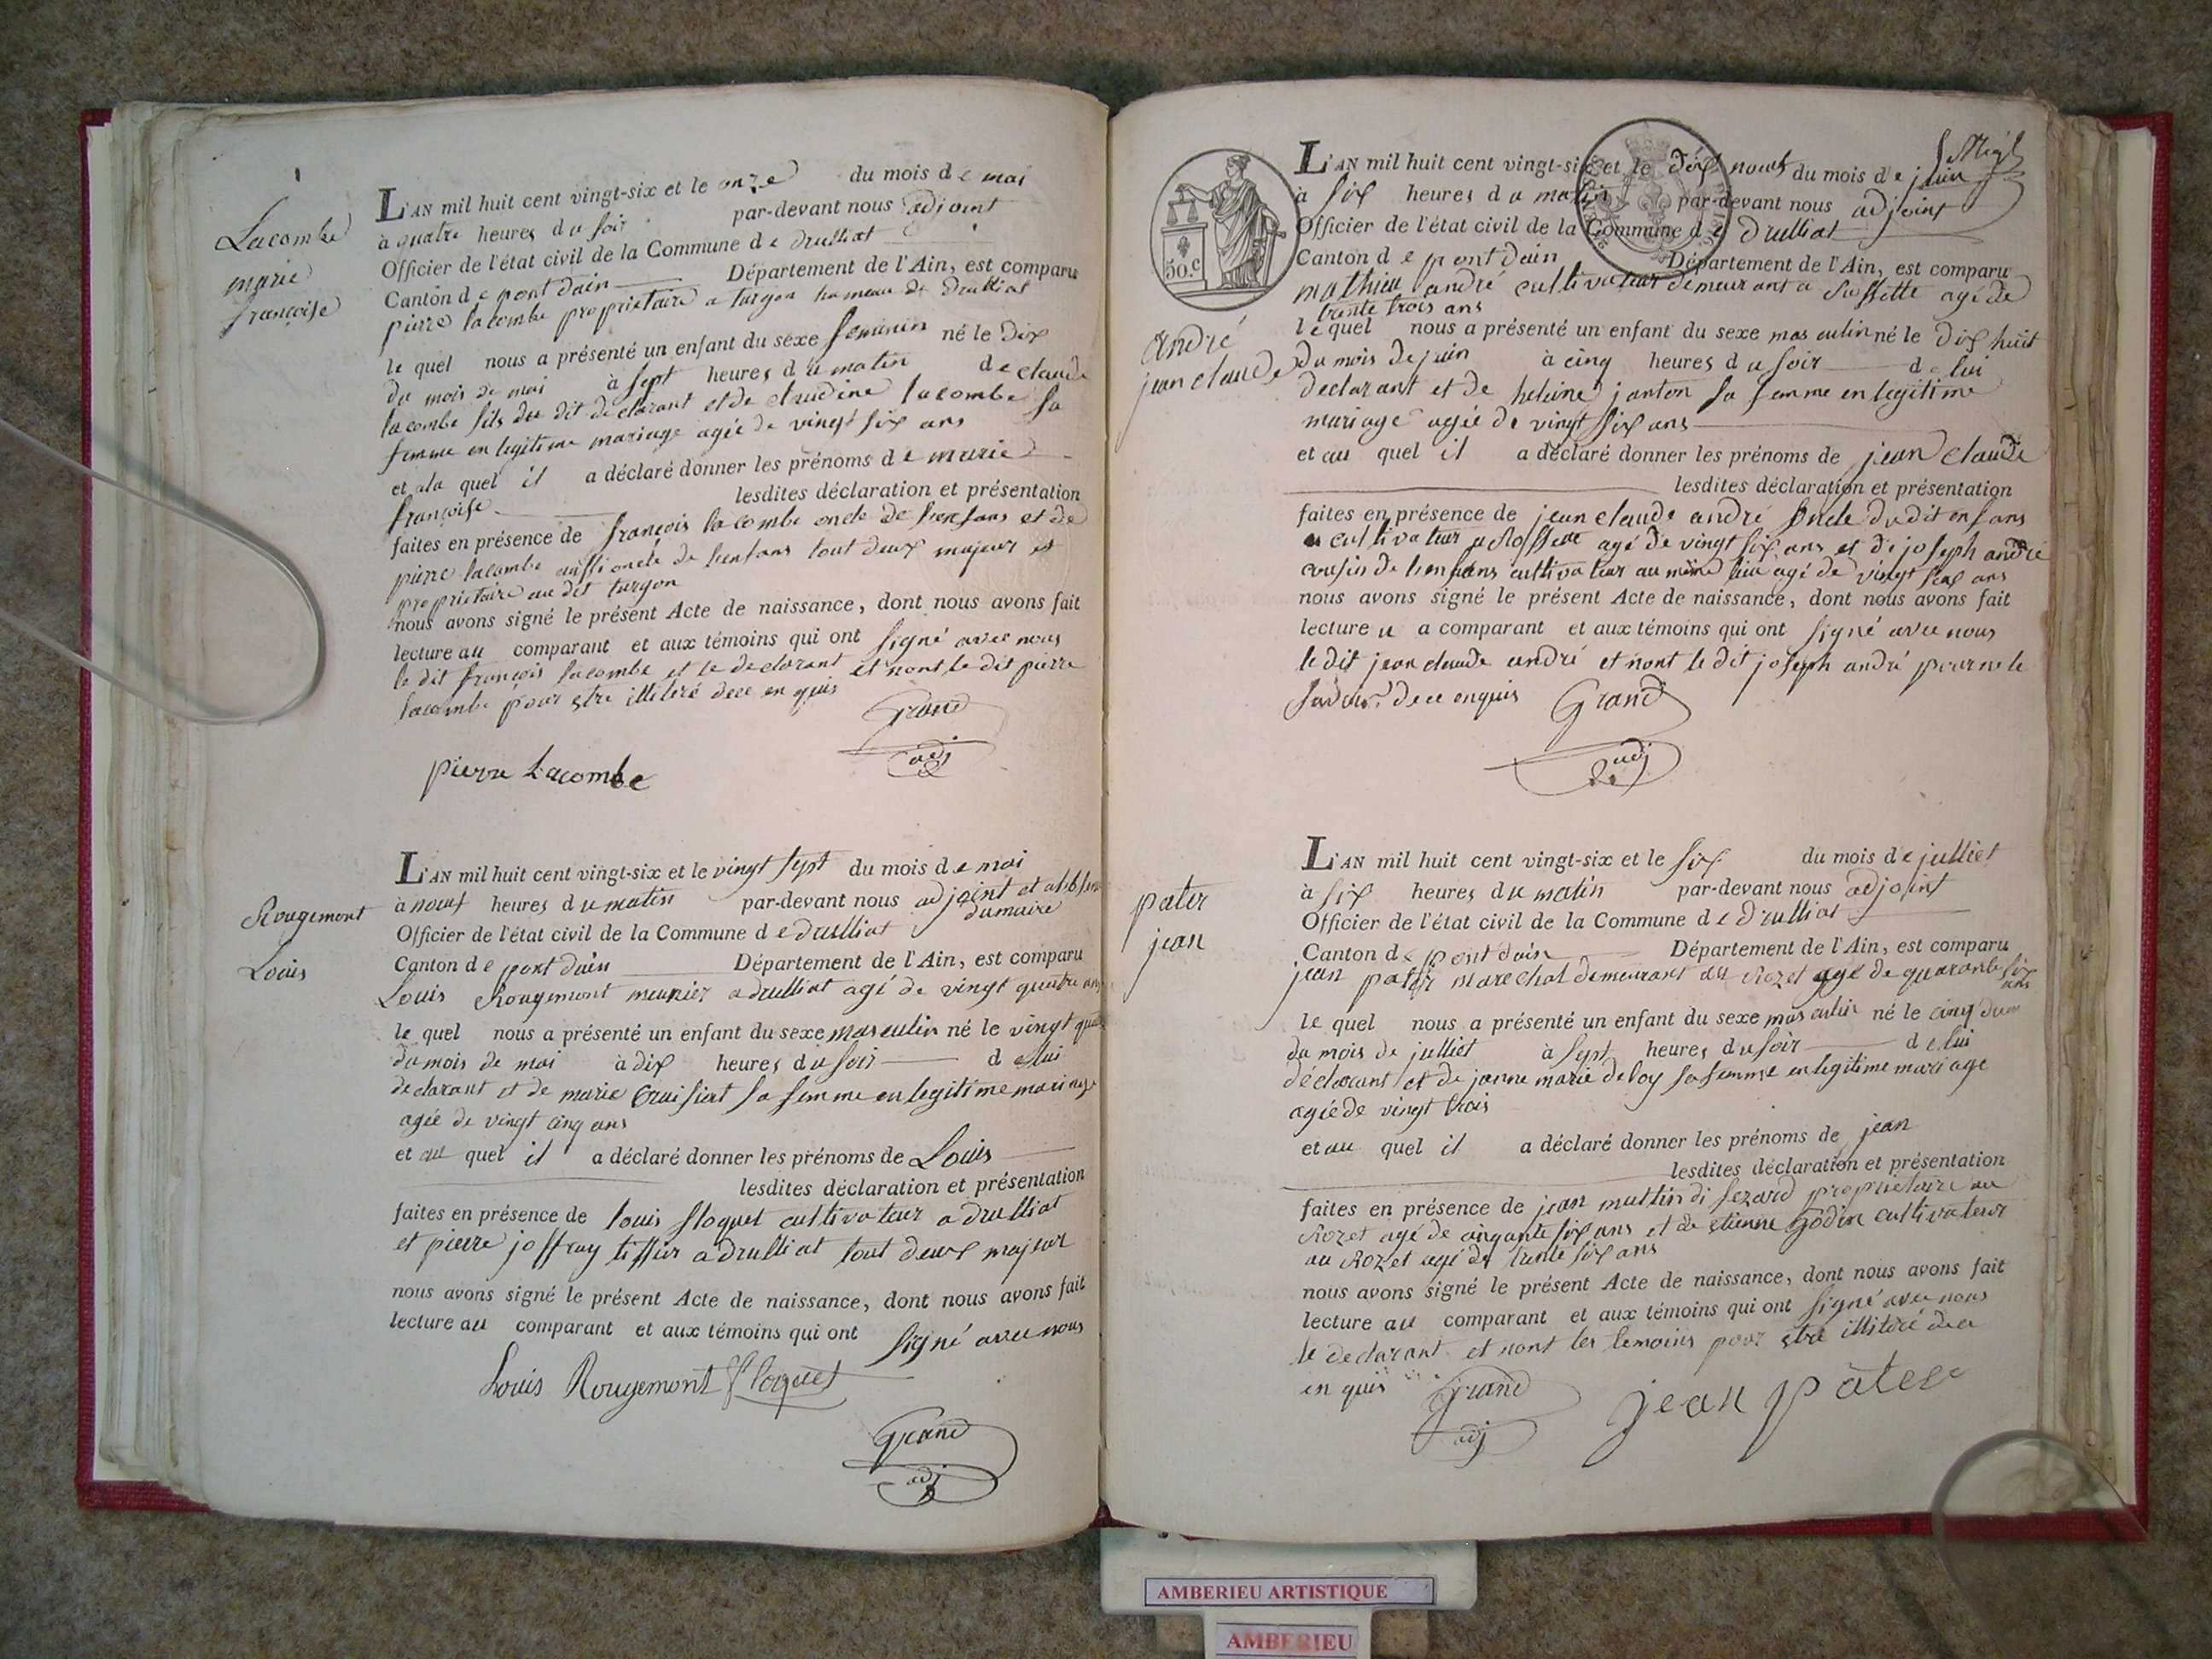 Lacombe
marie
françoise
L'AN mil huit cent vingt-six et le onze du mois de mai
à quatre heures du soir par-devant nous adjoint
Officier de l'état civil de la Commune de druilliat
Canton de pont dain Département de l'Ain, est comparu
pierre lacombe proprietaire a turgon hameau de druilliat
le quel nous a présenté un enfant du sexe feminin né le dix
du mois de mai à sept heures du matin de claude
lacombe fils du dit declarant et de claudine lacombe sa
femme en legitime mariage agée de vingt six ans
et ala quel il a déclaré donner les prénoms de marie
françoise lesdites déclaration et présentation
faites en présence de françois lacombe oncle de lenfans et de
pierre lacombe aussi oncle de lenfans tout deux majeur et
proprietaire au dit turgon
nous avons signé le présent Acte de naissance, dont nous avons fait
lecture au comparant et aux témoins qui ont signé avec nous
le dit françois lacombe et le declarant et nont le dit pierre
lacombe pour etre illiteré dece en quis
Grand
adj
pierre Lacombe
Rougemont
Louis
L'AN mil huit cent vingt-six et le vingt sept du mois de mai
à neuf heures du matin par-devant nous adjoint et
du maire
Officier de l'état civil de la Commune de druilliat
Canton de pont dain Département de l'Ain, est comparu
Louis Rougemont meunier a druilliat agé de vingt quatre ans
le quel nous a présenté un enfant du sexe masculin né le vingt
du mois de mai à dix heures du soir de lui
declarant et de marie sa femme en legitime mariage
agée de vingt cinq ans
et au quel il a déclaré donner les prénoms de Louis
lesdites déclaration et présentation
faites en présence de louis floquet cultivateur a druilliat
et pierre joffray tissier a druilliat tout deux majeur
nous avons signé le présent Acte de naissance, dont nous avons fait
lecture au comparant et aux témoins qui ont signé avec nous
Louis Rougemont floquet
Grand
adj
50.c
L'AN mil huit cent vingt-six et le dix neuf du mois de juin
à six heures du matin par-devant nous adjoint
Officier de l'état civil de la Commune de druilliat
Canton de pont dain Département de l'Ain, est comparu
mathieu andré cultivateur demeurant a agé de
trente trois ans
André
jean claude
le quel nous a présenté un enfant du sexe masculin né le dix huit
du mois de juin à cinq heures du soir de lui
declarant et de helaine janton sa femme en legitime
mariage agée de vingt six ans
et au quel il a déclaré donner les prénoms de jean claude
lesdites déclaration et présentation
faites en présence de jean claude andré oncle du dit enfans
cultivateur agé de vingt six ans et de joseph andré
cousin de lenfans cultivateur au même lieu agé de vingt ans
nous avons signé le présent Acte de naissance, dont nous avons fait
lecture au comparant et aux témoins qui ont signé avec nous
le dit jean claude andré et nont le dit joseph andré pour ne le
dece enquis Grand
adj
pater
jean
L'AN mil huit cent vingt-six et le six du mois de julliet
à six heures du matin par-devant nous adjoint
Officier de l'état civil de la Commune de druilliat
Canton de pont dain Département de l'Ain, est comparu
jean pater marechal demeurant au Rozet agé de quarante six
ans
le quel nous a présenté un enfant du sexe masculin né le cinq
du mois de julliet à sept heures du soir de lui
déclarant et de janne marie deloy sa femme en legitime mariage
agée de vingt trois
et au quel il a déclaré donner les prénoms de jean
lesdites déclaration et présentation
faites en présence de jean proprietaire au
Rozet agé de cinqante six ans et de etienne Godin cultivateur
au Rozet agé de trente six ans
nous avons signé le présent Acte de naissance, dont nous avons fait
lecture au comparant et aux témoins qui ont signé avec nous
le declarant et nont les temoins pour etre illiteré dece
en quis Grand
adj
jean pater
AMBERIEU ARTISTIQUE
AMBERIEU